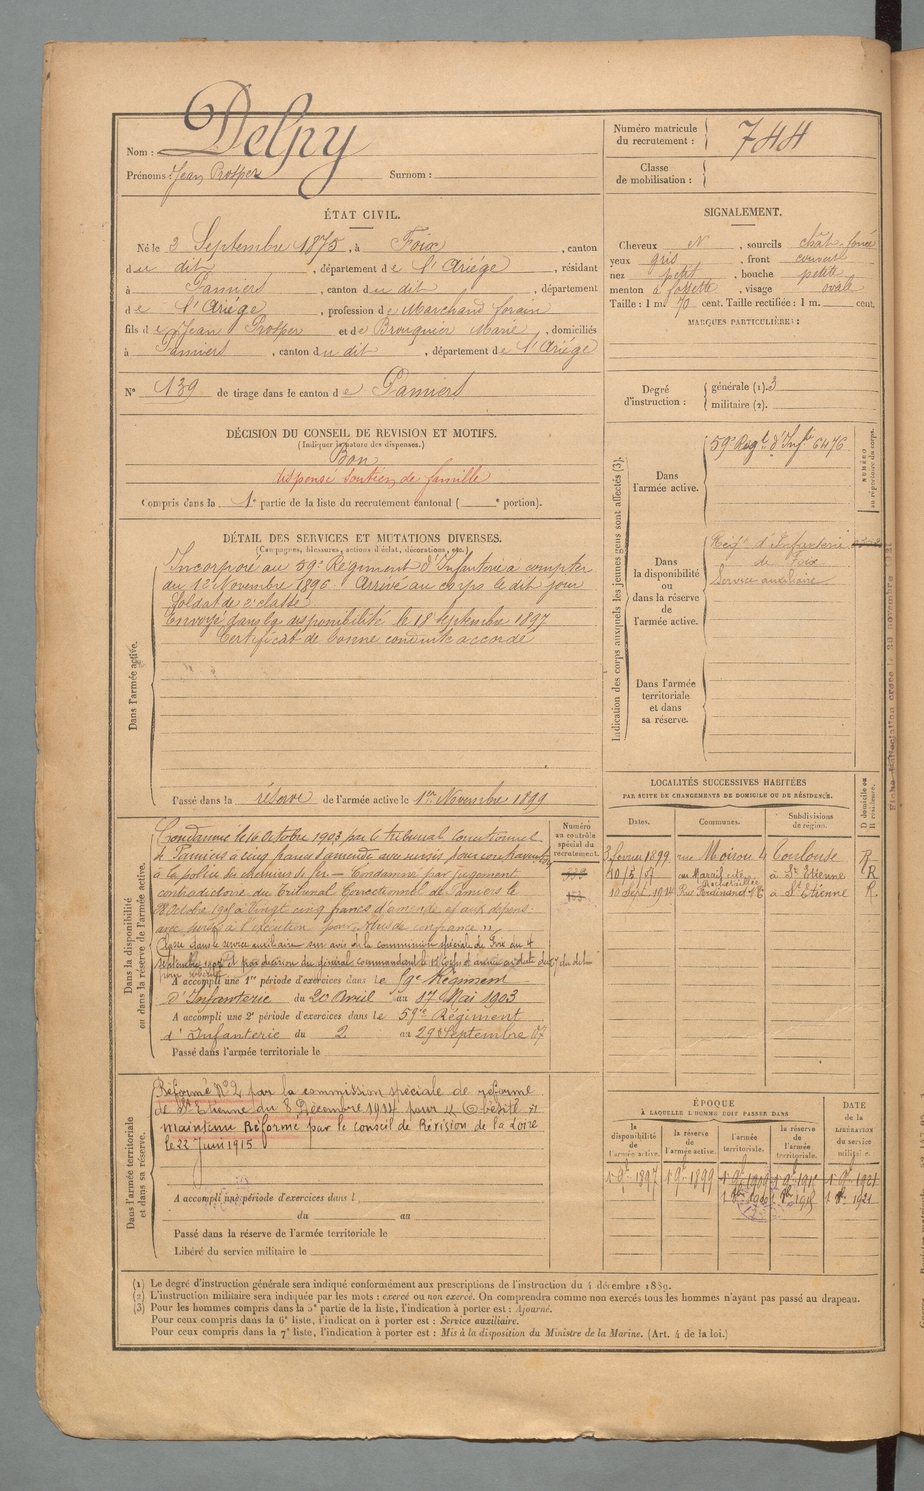 Nom : Delpy
Prénoms : Jean Prosper Surnom :
Numéro matricule du recrutement : 744
Classe de mobilisation :
ÉTAT CIVIL.
Né le 3 Septembre 1875, à Foix, canton
du dit, département de l'Ariége, résidant
à Pamiers, canton du dit, département
de l'Ariége, profession de Marchand forain
fils de Jean Prosper et de Brouquier Marie, domiciliés
à Pamiers, canton du dit, département de l'Ariége
N° 139 de tirage dans le canton de Pamiers
SIGNALEMENT.
Cheveux N, sourcils chât. foncé
yeux gris, front couvert
nez petit, bouche petite
menton à fossette, visage ovale
Taille : 1 m. 70 cent. Taille rectifiée : 1 m. cent.
MARQUES PARTICULIÈRES :
Degré d'instruction :
générale (1). 3
militaire (2).
DÉCISION DU CONSEIL DE REVISION ET MOTIFS.
(Indiquer la nature des dispenses.)
Bon
dispensé soutien de famille
Compris dans la 1e partie de la liste du recrutement cantonal ( e portion).
DÉTAIL DES SERVICES ET MUTATIONS DIVERSES.
(Campagnes, blessures, actions d'éclat, décorations, etc.)
Dans l'armée active.
Incorporé au 59e Régiment d'Infanterie à compter
du 12 Novembre 1896. Arrivé au corps le dit jour
Soldat de 2e classe
Envoyé dans la disponibilité le 18 septembre 1897
Certificat de bonne conduite accordé
Passé dans la réserve de l'armée active le 1er Novembre 1899
Indication des corps auxquels les jeunes gens sont affectés (3).
Dans l'armée active.
59e Régt d'Infie 6476
NUMÉRO au répertoire du corps.
Dans la disponibilité ou dans la réserve de l'armée active.
Régt d'Infanterie
de Foix
Service auxiliaire
Dans l'armée territoriale et dans sa réserve.
LOCALITÉS SUCCESSIVES HABITÉES
PAR SUITE DE CHANGEMENTS DE DOMICILE OU DE RÉSIDENCE.
Dates. Communes. Subdivisions de région. D domicile ou R résidence.
3 février 1899 rue Moiron 4 Toulouse R
à St Etienne R
10 Sept. 1914 Rue Ferdinand à St Etienne R
Dans la disponibilité ou dans la réserve de l'armée active.
Numéro au contrôle spécial du recrutement.
Condamné le 16 Octobre 1903 par le tribunal Correctionnel
de Pamiers à cinq francs d'amende avec sursis pour contravention
à la police des chemins de fer — Condamné par jugement
contradictoire du Tribunal Correctionnel de Pamiers le
à Vingt cinq francs d'amende et aux dépens
avec sursis à l'exécution pour abus de confiance "
Classé dans le service auxiliaire sur avis de la commission spéciale de Foix du 4
septembre et par décision du général commandant le
A accompli une 1re période d'exercices dans le 59e Régiment
d'Infanterie du 20 Avril au 17 Mai 1903
A accompli une 2e période d'exercices dans le 59e Régiment
d'Infanterie du 2 au 29 Septembre 07
Passé dans l'armée territoriale le
Dans l'armée territoriale et dans sa réserve.
Réformé N°2 par la commission spéciale de réforme
de St Etienne du 8 Décembre 1914 pour " Obésité "
maintenu Réformé par le conseil de Révision de la Loire
le 22 Juin 1915
A accompli une période d'exercices dans l
du au
Passé dans la réserve de l'armée territoriale le
Libéré du service militaire le
ÉPOQUE
À LAQUELLE L'HOMME DOIT PASSER DANS
la disponibilité de l'armée active. la réserve de l'armée active. l'armée territoriale. la réserve de l'armée territoriale.
DATE de la LIBÉRATION du service militaire.
(1) Le degré d'instruction générale sera indiqué conformément aux prescriptions de l'instruction du 4 décembre 1889.
(2) L'instruction militaire sera indiquée par les mots : exercé ou non exercé. On comprendra comme non exercés tous les hommes n'ayant pas passé au drapeau.
(3) Pour les hommes compris dans la 5e partie de la liste, l'indication à porter est : Ajourné.
Pour ceux compris dans la 6e liste, l'indication à porter est : Service auxiliaire.
Pour ceux compris dans la 7e liste, l'indication à porter est : Mis à la disposition du Ministre de la Marine. (Art. 4 de la loi.)